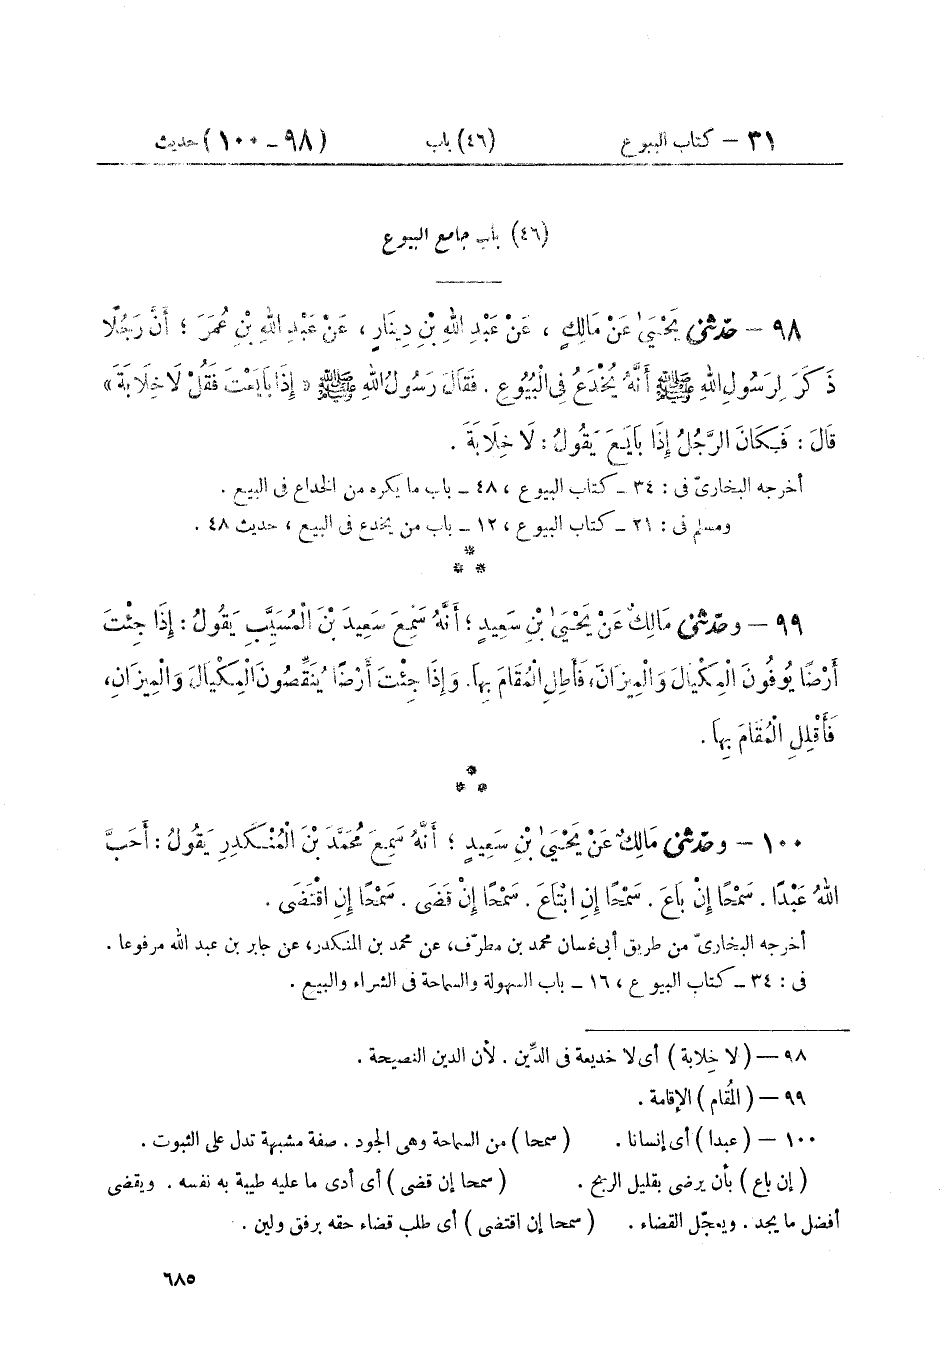 ٣١ – كتاب البيوع (٤٦) باب (٩٨ – ١٠٠) حديث
(٤٦) باب جامع البيوع
٩٨ – حدّثنى يَحْيَىٰ عَنْ مَالِكٍ ، عَنْ عَبْدِ اللهِ بْنِ دِينَارٍ ، عَنْ عَبْدِ اللهِ بْنِ عُمَرَ ؛ أَنَّ رَجُلًا
ذَكَرَ لِرَسُولِ اللهِ ﷺ أَنَّهُ يُخْدَعُ فِى الْبُيُوعِ . فَقَالَ رَسُولُ اللهِ ﷺ « إِذَا بَايَعْتَ فَقُلْ لَا خِلَابَةَ »
قَالَ : فَكَانَ الرَّجُلُ إِذَا بَايَعَ يَقُولُ : لَا خِلَابَةَ .
أخرجه البخارىّ فى : ٣٤ – كتاب البيوع ، ٤٨ – باب ما يكره من الخداع فى البيع .
ومسلم فى : ٢١ – كتاب البيوع ، ١٢ – باب من يخدع فى البيع ، حديث ٤٨ .
*
* *
٩٩ – وحدّثنى مَالِكٌ عَنْ يَحْيَىٰ بْنِ سَعِيدٍ ؛ أَنَّهُ سَمِعَ سَعِيدَ بْنَ الْمُسَيَّبِ يَقُولُ : إِذَا جِئْتَ
أَرْضًا يُوفُونَ الْمِكْيَالَ وَالْمِيزَانَ، فَأَطِلِ الْمُقَامَ بِهَا. وَإِذَا جِئْتَ أَرْضًا يُنَقِّصُونَ الْمِكْيَالَ وَالْمِيزَانَ،
فَأَقْلِلِ الْمُقَامَ بِهَا .
*
* *
١٠٠ – وحدّثنى مَالِكٌ عَنْ يَحْيَىٰ بْنِ سَعِيدٍ ؛ أَنَّهُ سَمِعَ مُحَمَّدَ بْنَ الْمُنْكَدِرِ يَقُولُ : أَحَبَّ
اللهُ عَبْدًا . سَمْحًا إِنْ بَاعَ . سَمْحًا إِنِ ابْتَاعَ . سَمْحًا إِنْ قَضَى . سَمْحًا إِنِ اقْتَضَى .
أخرجه البخارىّ من طريق أبى غسان محمد بن مطرّف، عن محمد بن المنكدر، عن جابر بن عبد الله مرفوعا .
فى : ٣٤ – كتاب البيوع ، ١٦ – باب السهولة والسماحة فى الشراء والبيع .
٩٨ – ( لا خِلابة ) أى لا خديعة فى الدِّين . لأن الدين النصيحة .
٩٩ – ( المُقام ) الإقامة .
١٠٠ – ( عبدا ) أى إنسانا . ( سمحا ) من السماحة وهى الجود . صفة مشبهة تدل على الثبوت .
( إن باع ) بأن يرضى بقليل الربح . ( سمحا إن قضى ) أى أدى ما عليه طيبة به نفسه . ويقضى
أفضل ما يجد . ويعجّل القضاء . ( سمحا إن اقتضى ) أى طلب قضاء حقه برفق ولين .
٦٨٥